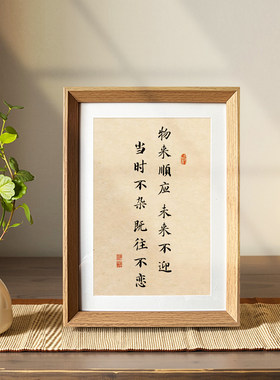 物来順应 未来不迎
当时不杂 既往不恋